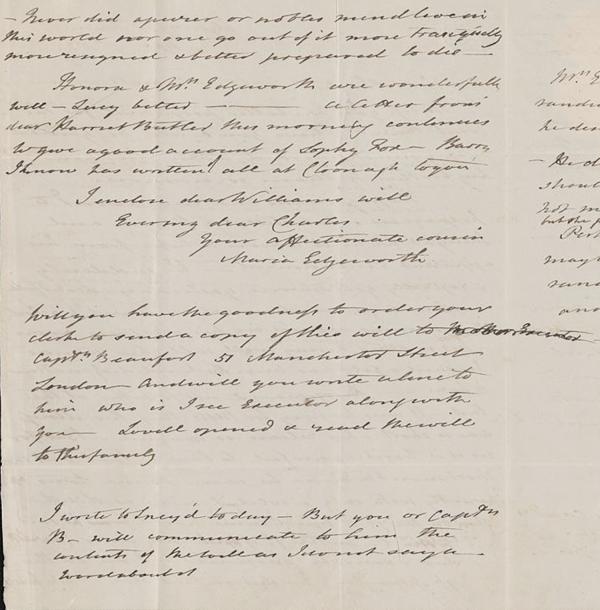 — Never did a purer or nobler mind live in
this world nor one go out of it more tranquilly
more resigned & better prepared to die —
Honora & Mrs Edgeworth are wonderfully
well — Lucy better — a letter from
dear Harriet Butler this morning continues
to give a good account of Sophy Fox — Barry
I know has written all at Cloonagh to you
I enclose dear Williams will
Ever my dear Charles
Your affectionate cousin
Maria Edgeworth
Will you have the goodness to order your
clerk to send a copy of this will to the other Executor
Captn Beaufort 51 Manchester Street
London — And will you write a line to
him who is I see Executor along with
you — Lovell opened & read the will
to the family
I wrote to today — But you or Captn
B — will communicate to him the
contents of the will as I do not say a
word about it
Mrs E
he des
— He d
should
not m
but she p
Per
may
and